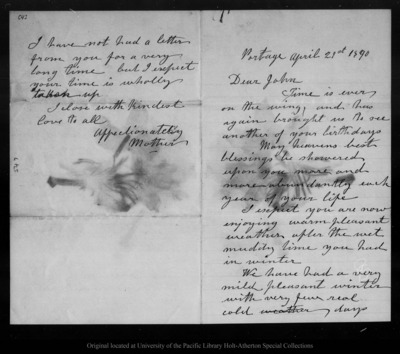 Portage April 21st 1890
Dear John
Time is ever
on the wing, and has
again brought us to see
another of your birthdays
May heavens best
blessings be showered
upon you more and
more abundantly each
year of your life
I expect you are now
enjoying warm pleasant
weather, after the wet
muddy time you had
in winter
We have had a very
mild pleasant winter
with very few real
cold weather days
I have not had a letter
from you for a very
long time but I expect
your time is wholly
taken up
I close with kindest
love to all
Affectionately
Mother
Original located at University of the Pacific Library Holt-Atherton Special Collections